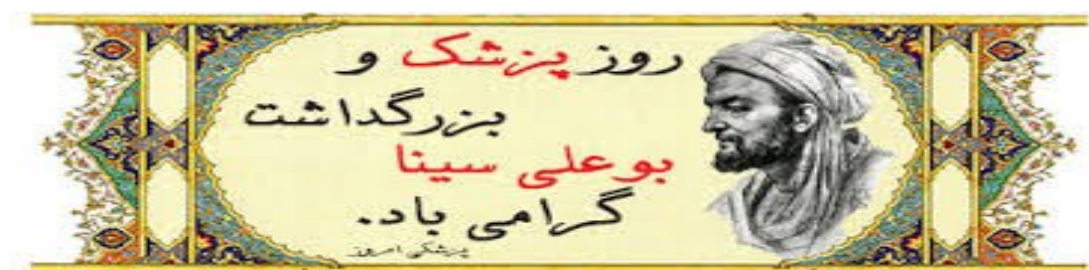 روز پزشک و
بزرگداشت
بوعلی سینا
گرامی باد.
پزشکی امروز